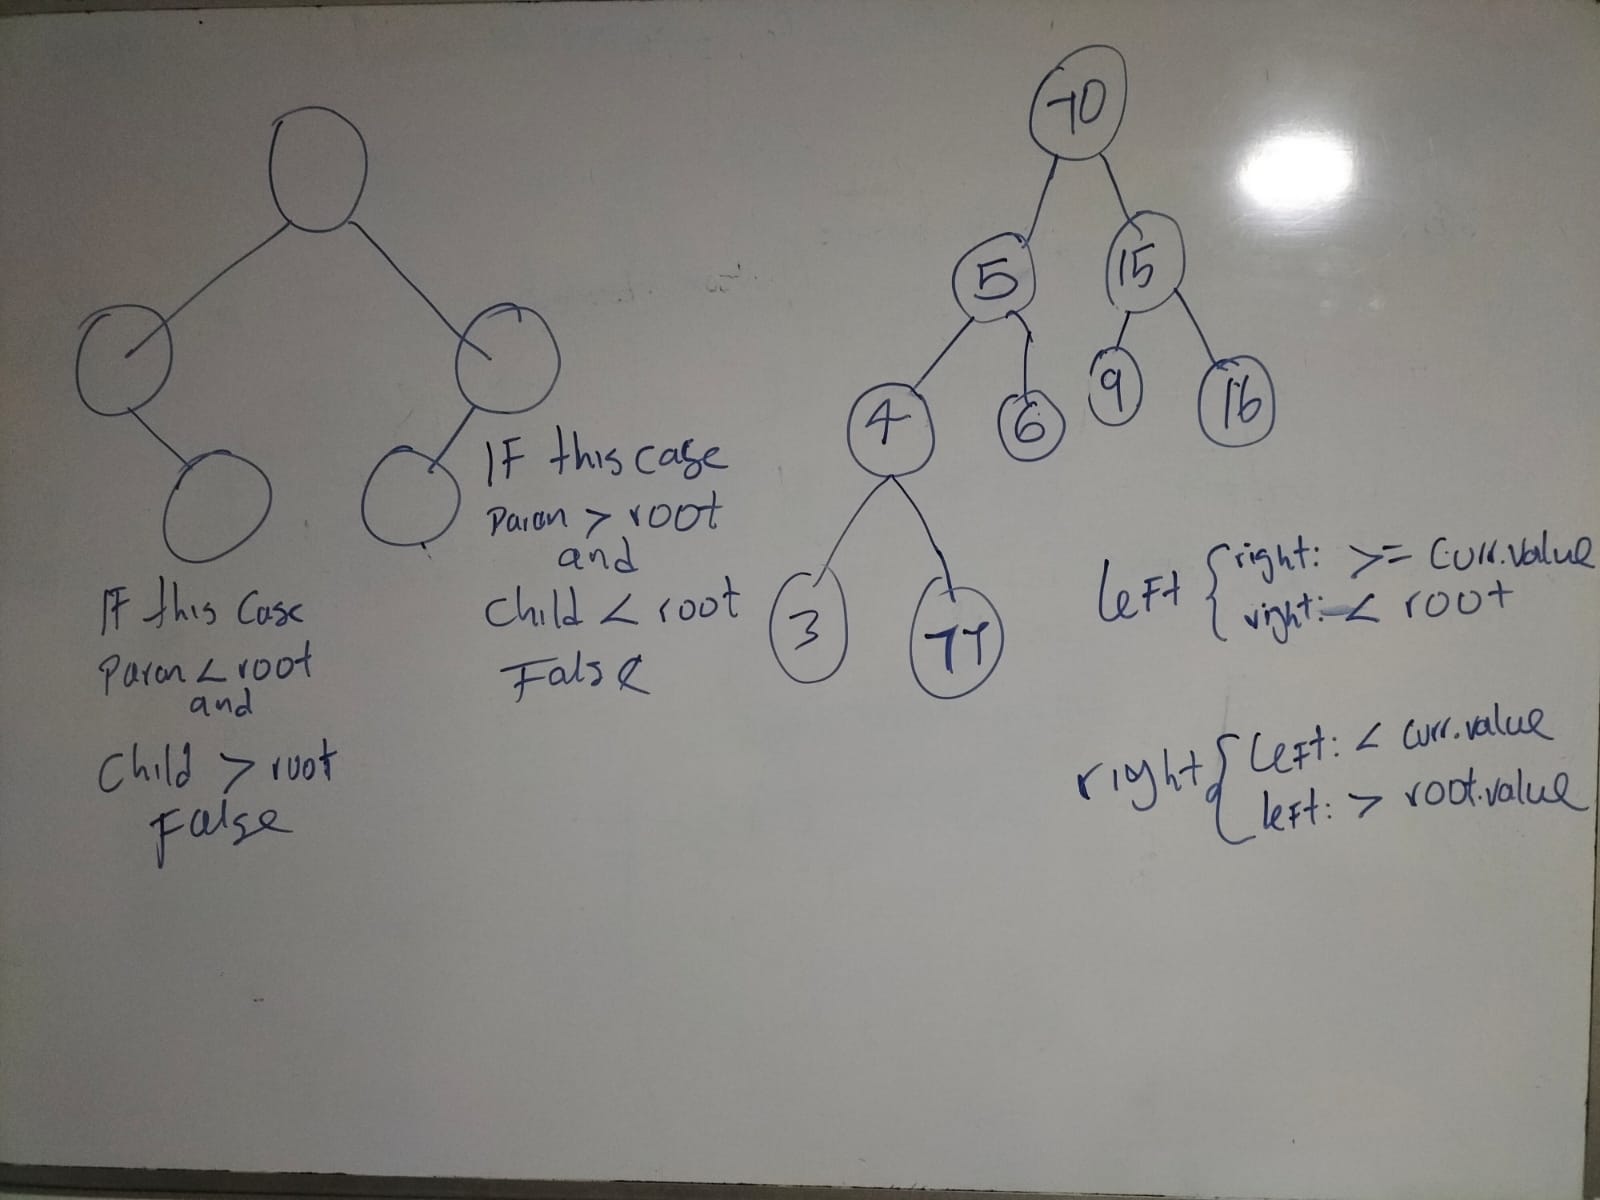 5
15
4
6
9
16
3
IF this case
Paran > root
and
Child < root
False
IF this Case
Paran < root
and
Child > root
False
left { right: >= Curr.value
right: < root
right { Left: < Curr.value
left: > root.value